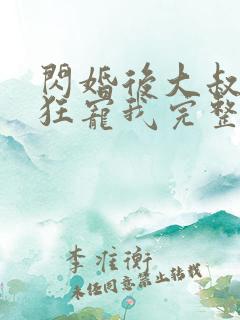 閃婚後大叔
狂寵我完整
李准衡
未經同意禁止轉載